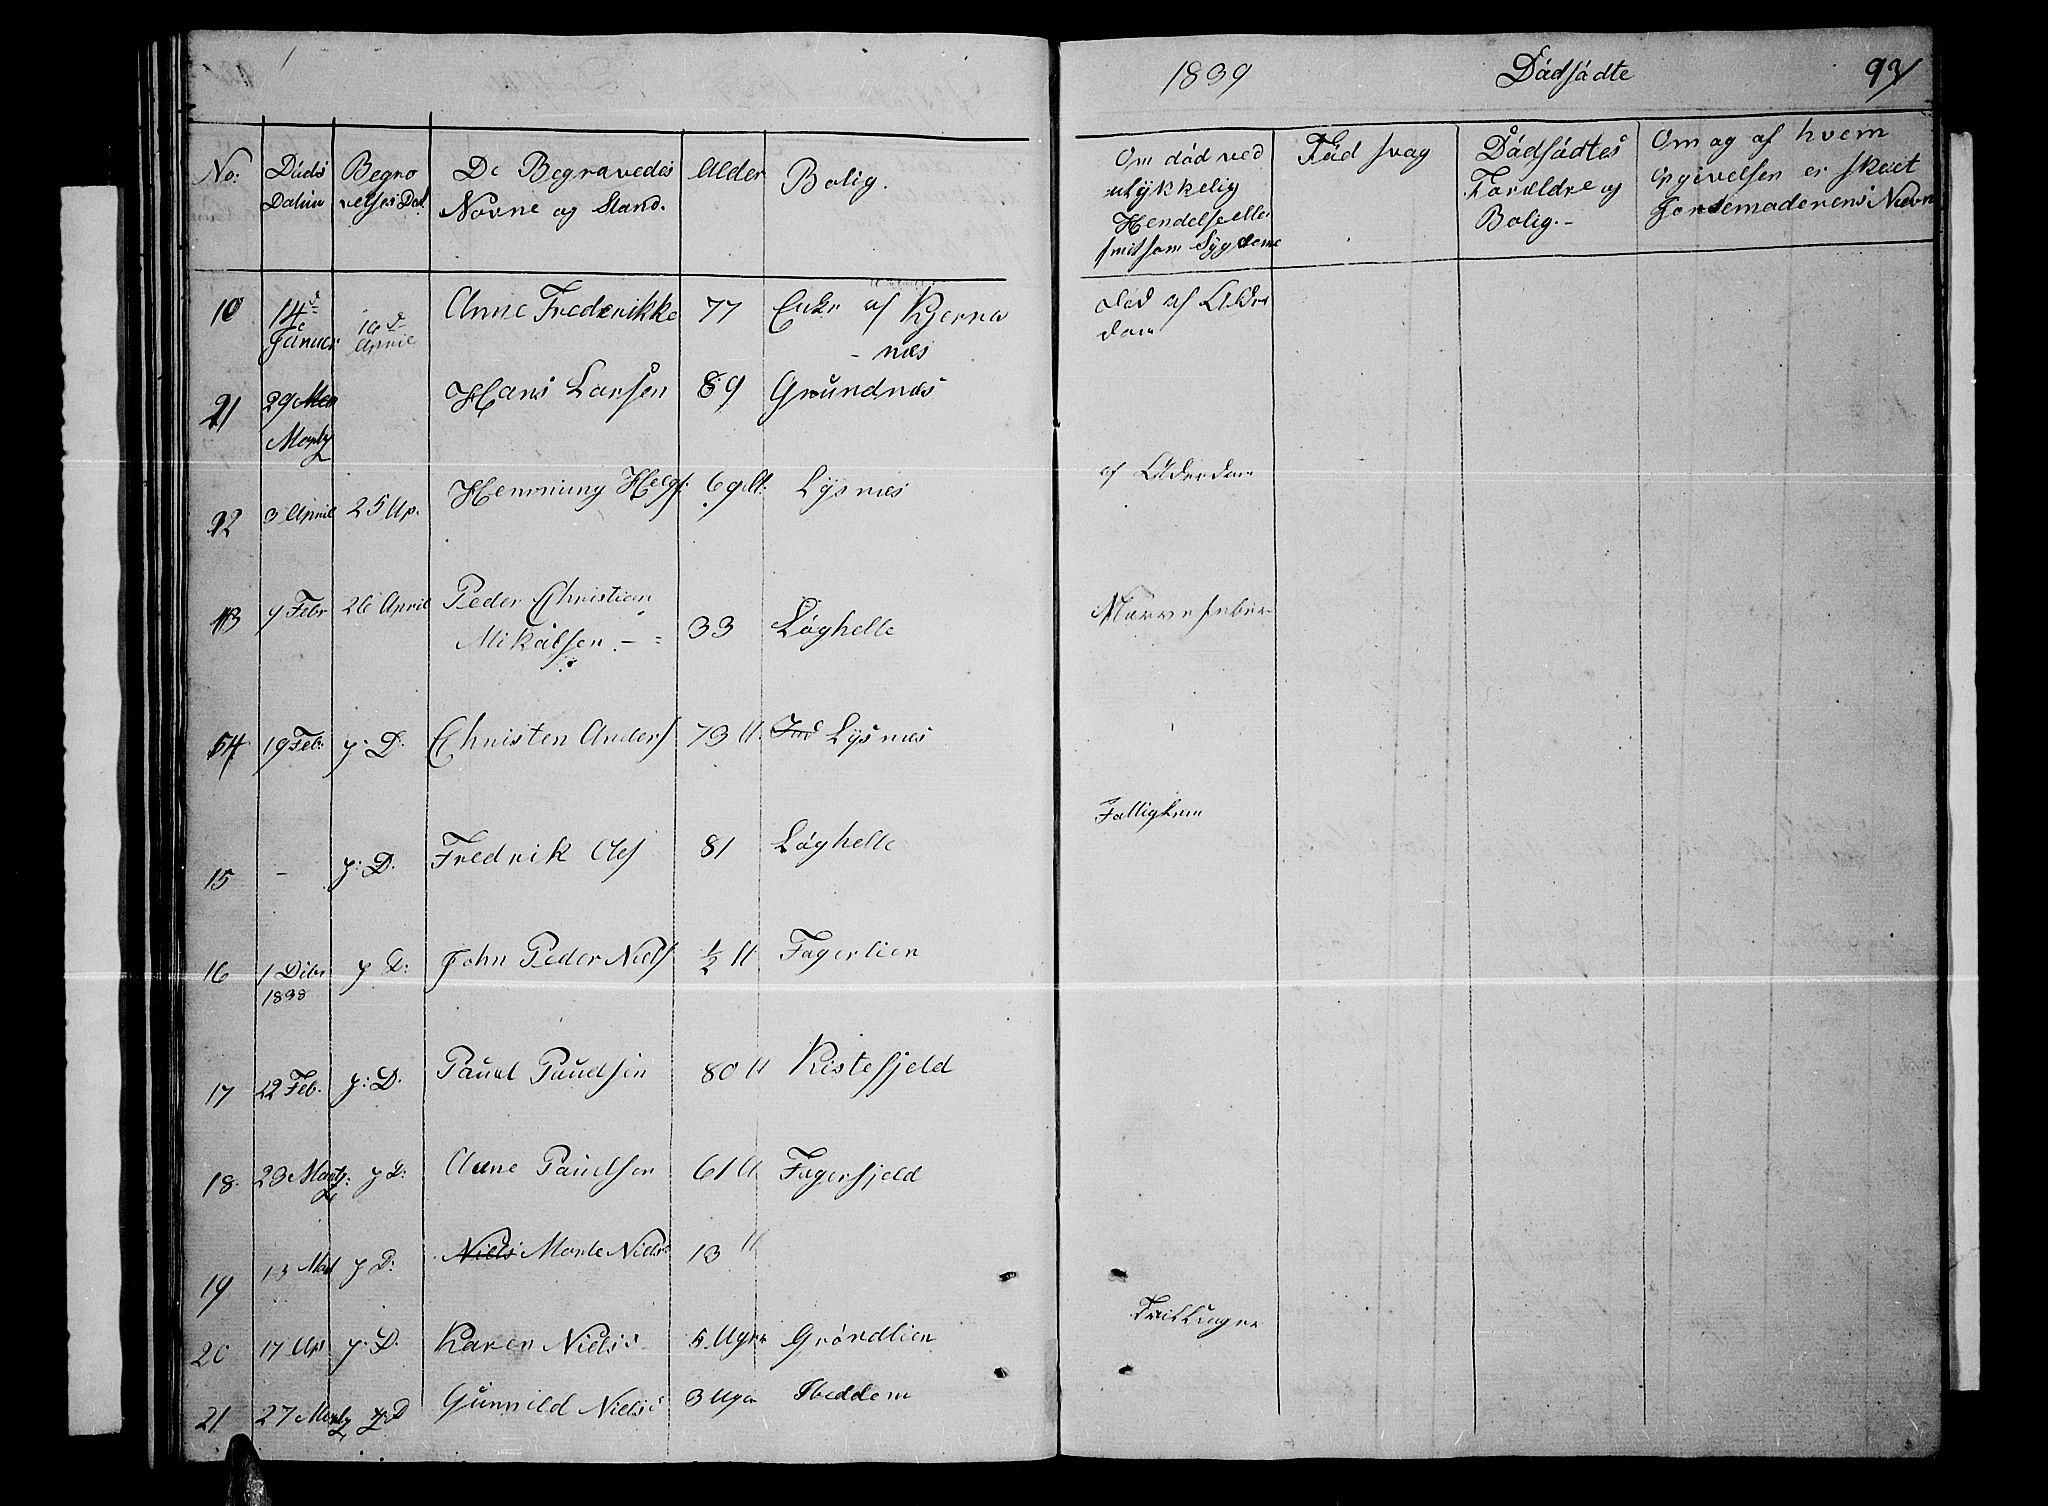 1839 Dödfödte 93
No: Döds Datum Begravelses Dat. De Begravedes Navne og Stand. Alder Bolig.
Om död ved ulykkelig Hendelse eller smitsom Sygdome Född svag Dödfödtes Forældre og Bolig. - Om og af hvem Opgivelsen er skeet Jordemoderens Navn
10 14de Januer 16de April Anne Frederikke 77 Enke af Kjerranæs Död af Alderdom
21 29 Martz Hans Larsen 89 Grundnæs
22 3 April 25 Ap. Henning Helgs: 69 A: Lysnæs af Alderdom
13 7 Febr 26 April Peder Christian Mikälsen - 33 Löghelle
14 19 Feb. s: D: Christen Anders 73 A. Lysnæs
15 - s: D. Fredrik Ols 81 Löghelle Fattiglem
16 1 Dcbr 1838 s D: John Peder Niels ½ A Fagerlien
17 22 Feb. s: D. Paul Paulsen 80 A Kistefjeld
18 23 Martz: s D: Anne Paulsen 61 A Fagerfjeld
19 13 s D: Niels Niels 13 A
20 17 Ap s: D. Karen Niels: 5 Uger Gröndlien
21 27 Martz s D Gunnild Niels: 3 Uger Ibeddem